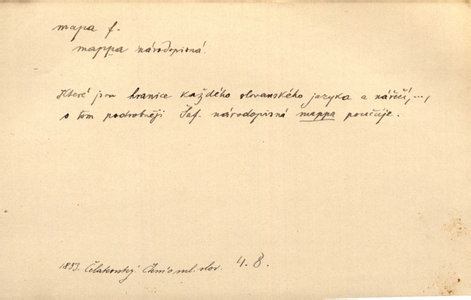 mapa f.
mappa národopisná.
Které jsou hranice každého slovanského jazyka a nářečí, ...,
o tom podrobněji Šaf. národopisná mappa poučuje.
1853. Čelakovský Čten. o ml. slov. 4. 8.